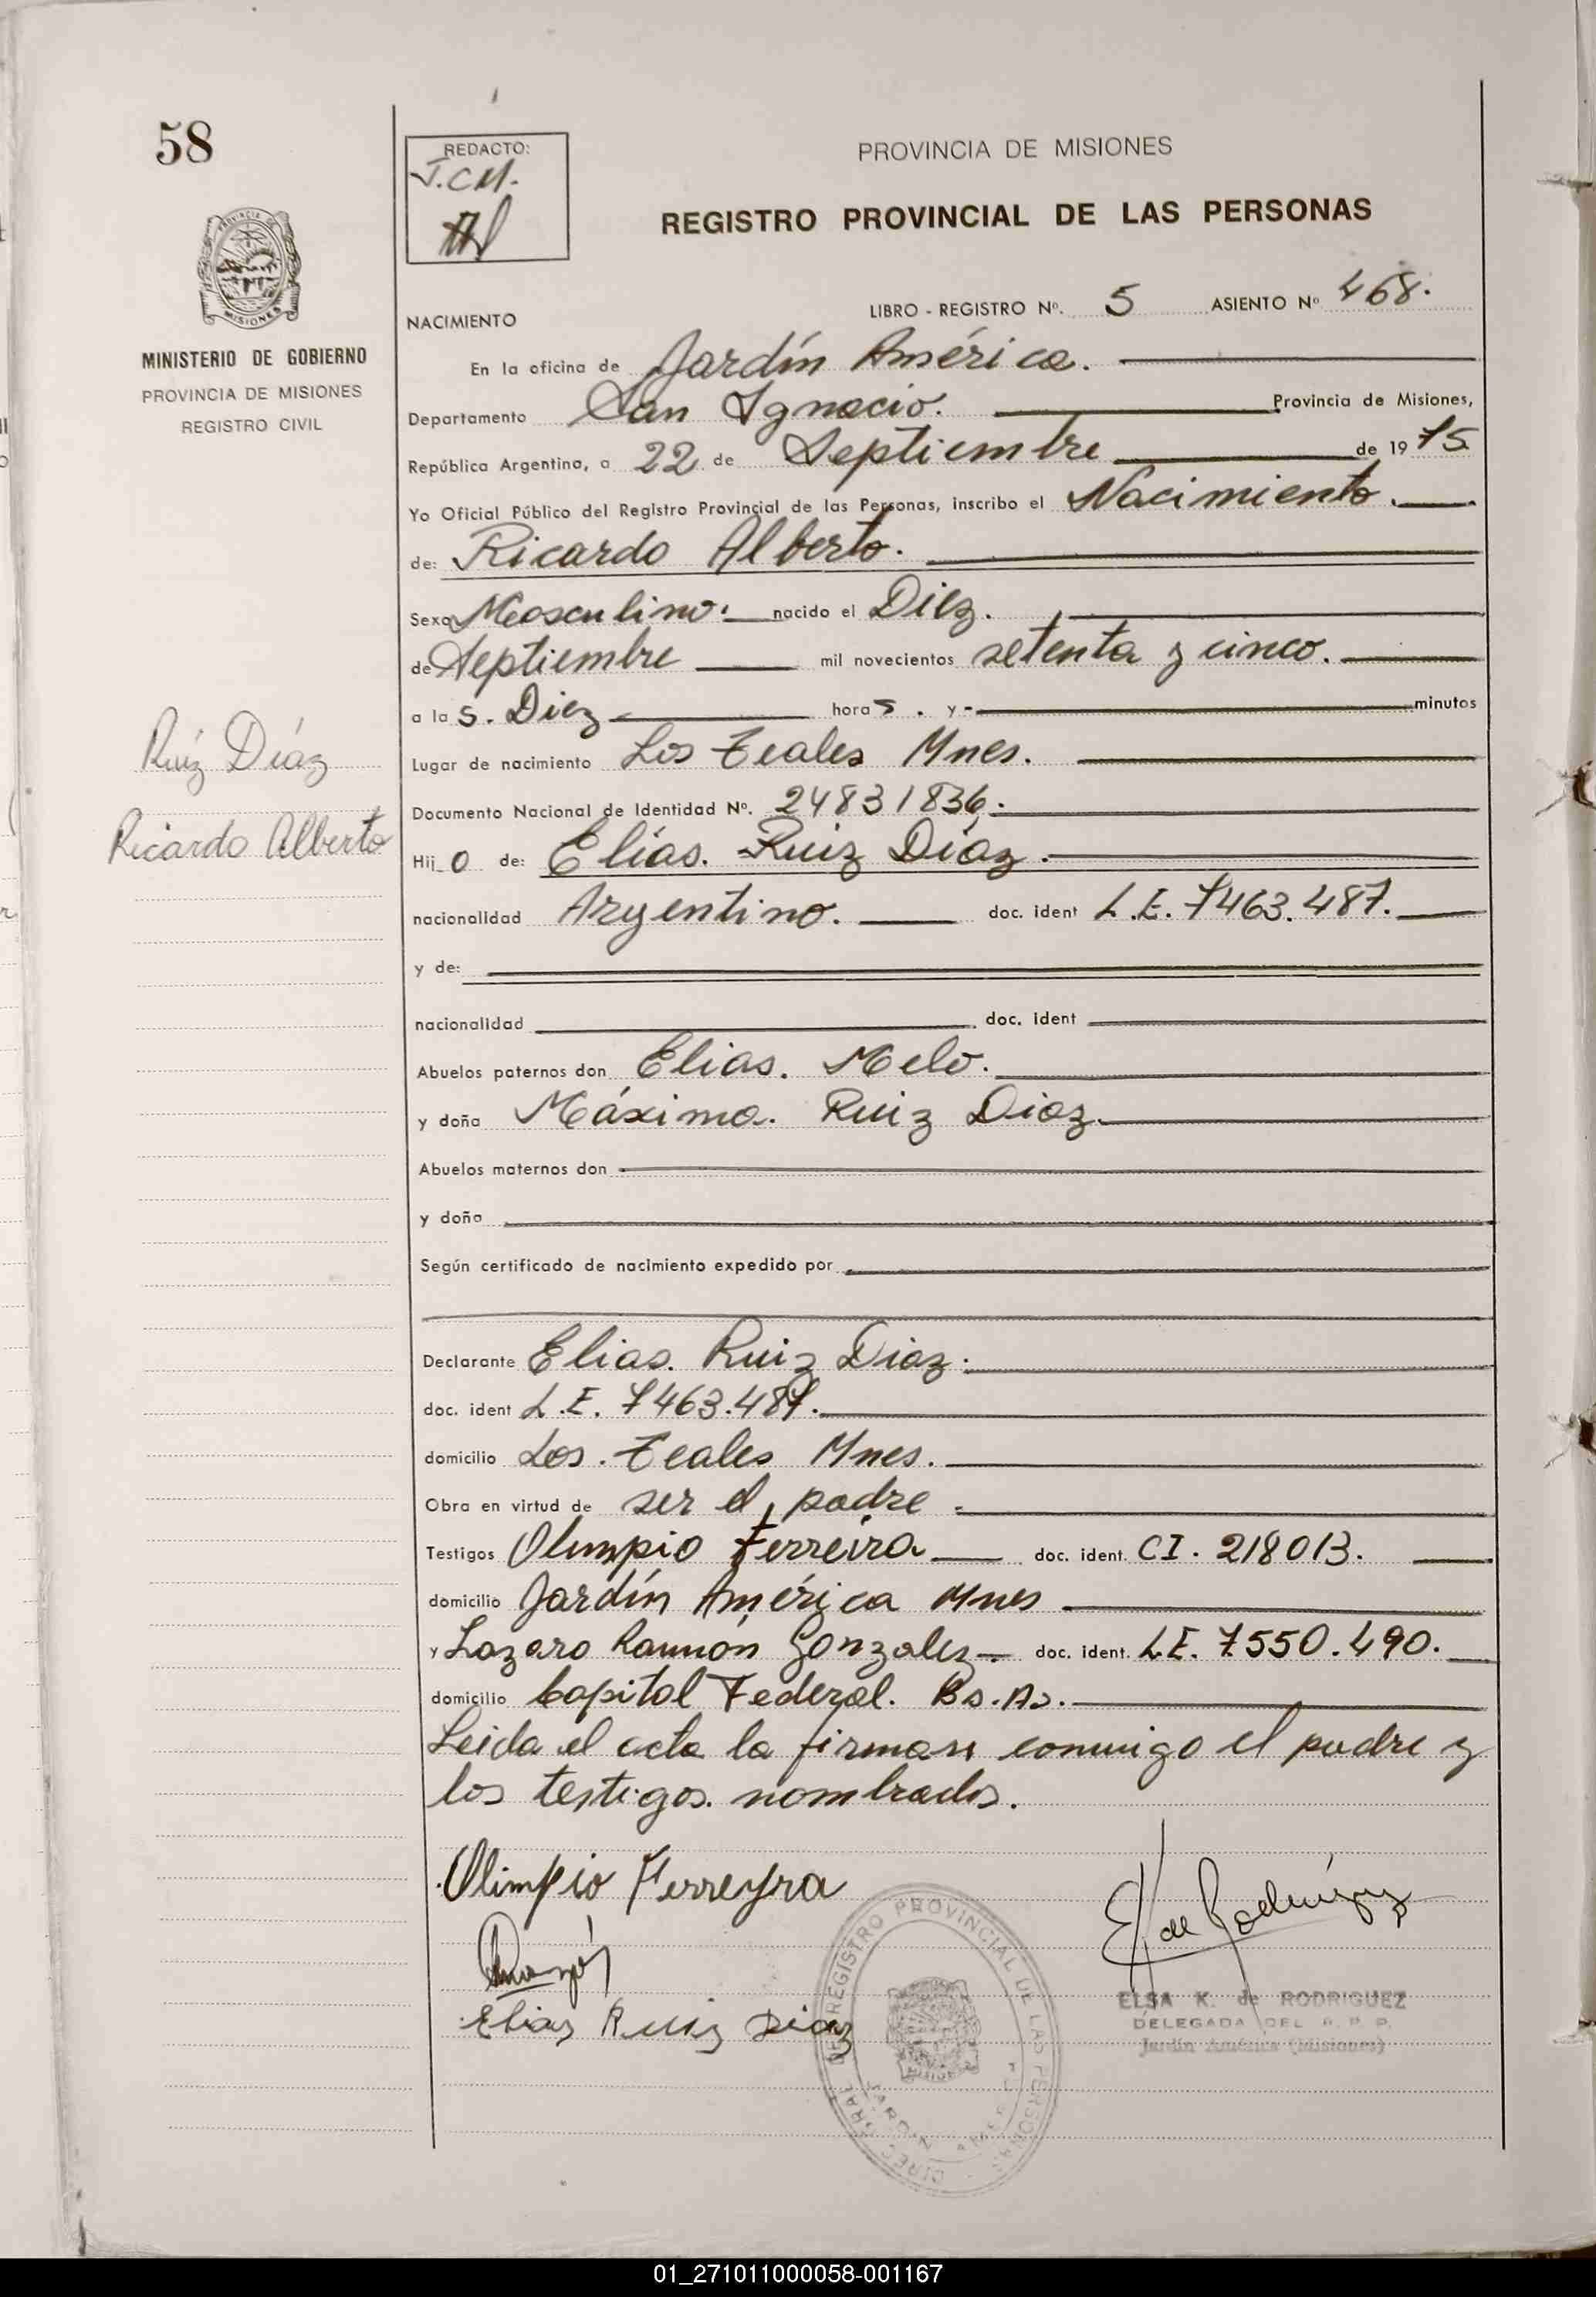 58
REDACTO:
J.C.M.
PROVINCIA DE MISIONES
REGISTRO PROVINCIAL DE LAS PERSONAS
MINISTERIO DE GOBIERNO
PROVINCIA DE MISIONES
REGISTRO CIVIL
NACIMIENTO
LIBRO - REGISTRO Nº. 5 ASIENTO Nº 468.
En la oficina de Jardín América.
Departamento San Ignacio. Provincia de Misiones,
República Argentina, a 22 de Septiembre de 1975.
Yo Oficial Público del Registro Provincial de las Personas, inscribo el Nacimiento.
de: Ricardo Alberto.
Sexo Masculino. nacido el Diez.
de Septiembre mil novecientos setenta y cinco.
a las. Diez horas. y - minutos
Lugar de nacimiento Los Teales Mnes.
Documento Nacional de Identidad Nº. 24831836.
Ruíz Díaz
Ricardo Alberto
Hijo de: Elías. Ruiz Díaz.
nacionalidad Argentino. doc. ident L.E. 7463.487.
y de:
nacionalidad doc. ident
Abuelos paternos don Elias. Melo.
y doña Máxima. Ruiz Diaz.
Abuelos maternos don
y doña
Según certificado de nacimiento expedido por
Declarante Elias. Ruiz Diaz.
doc. ident L.E. 7463.487.
domicilio Los. Teales Mnes.
Obra en virtud de ser el padre
Testigos Olimpio Ferreira doc. ident. CI. 218013.
domicilio Jardín América Mnes
y Lazaro Ramón Gonzalez doc. ident. L.E. 7550.490.
domicilio Capital Federal. Bs.As.
Leida el acta la firman conmigo el padre y
los testigos. nombrados.
Olimpio Ferreyra
Elias Ruiz Diaz
E K de Rodríguez
DIREC GRAL DE REGISTRO PROVINCIAL DE LAS PERSONAS
JARDIN AMERICA
ELSA K. de RODRIGUEZ
DELEGADA DEL R. P. P.
Jardín América (Misiones)
01_271011000058-001167